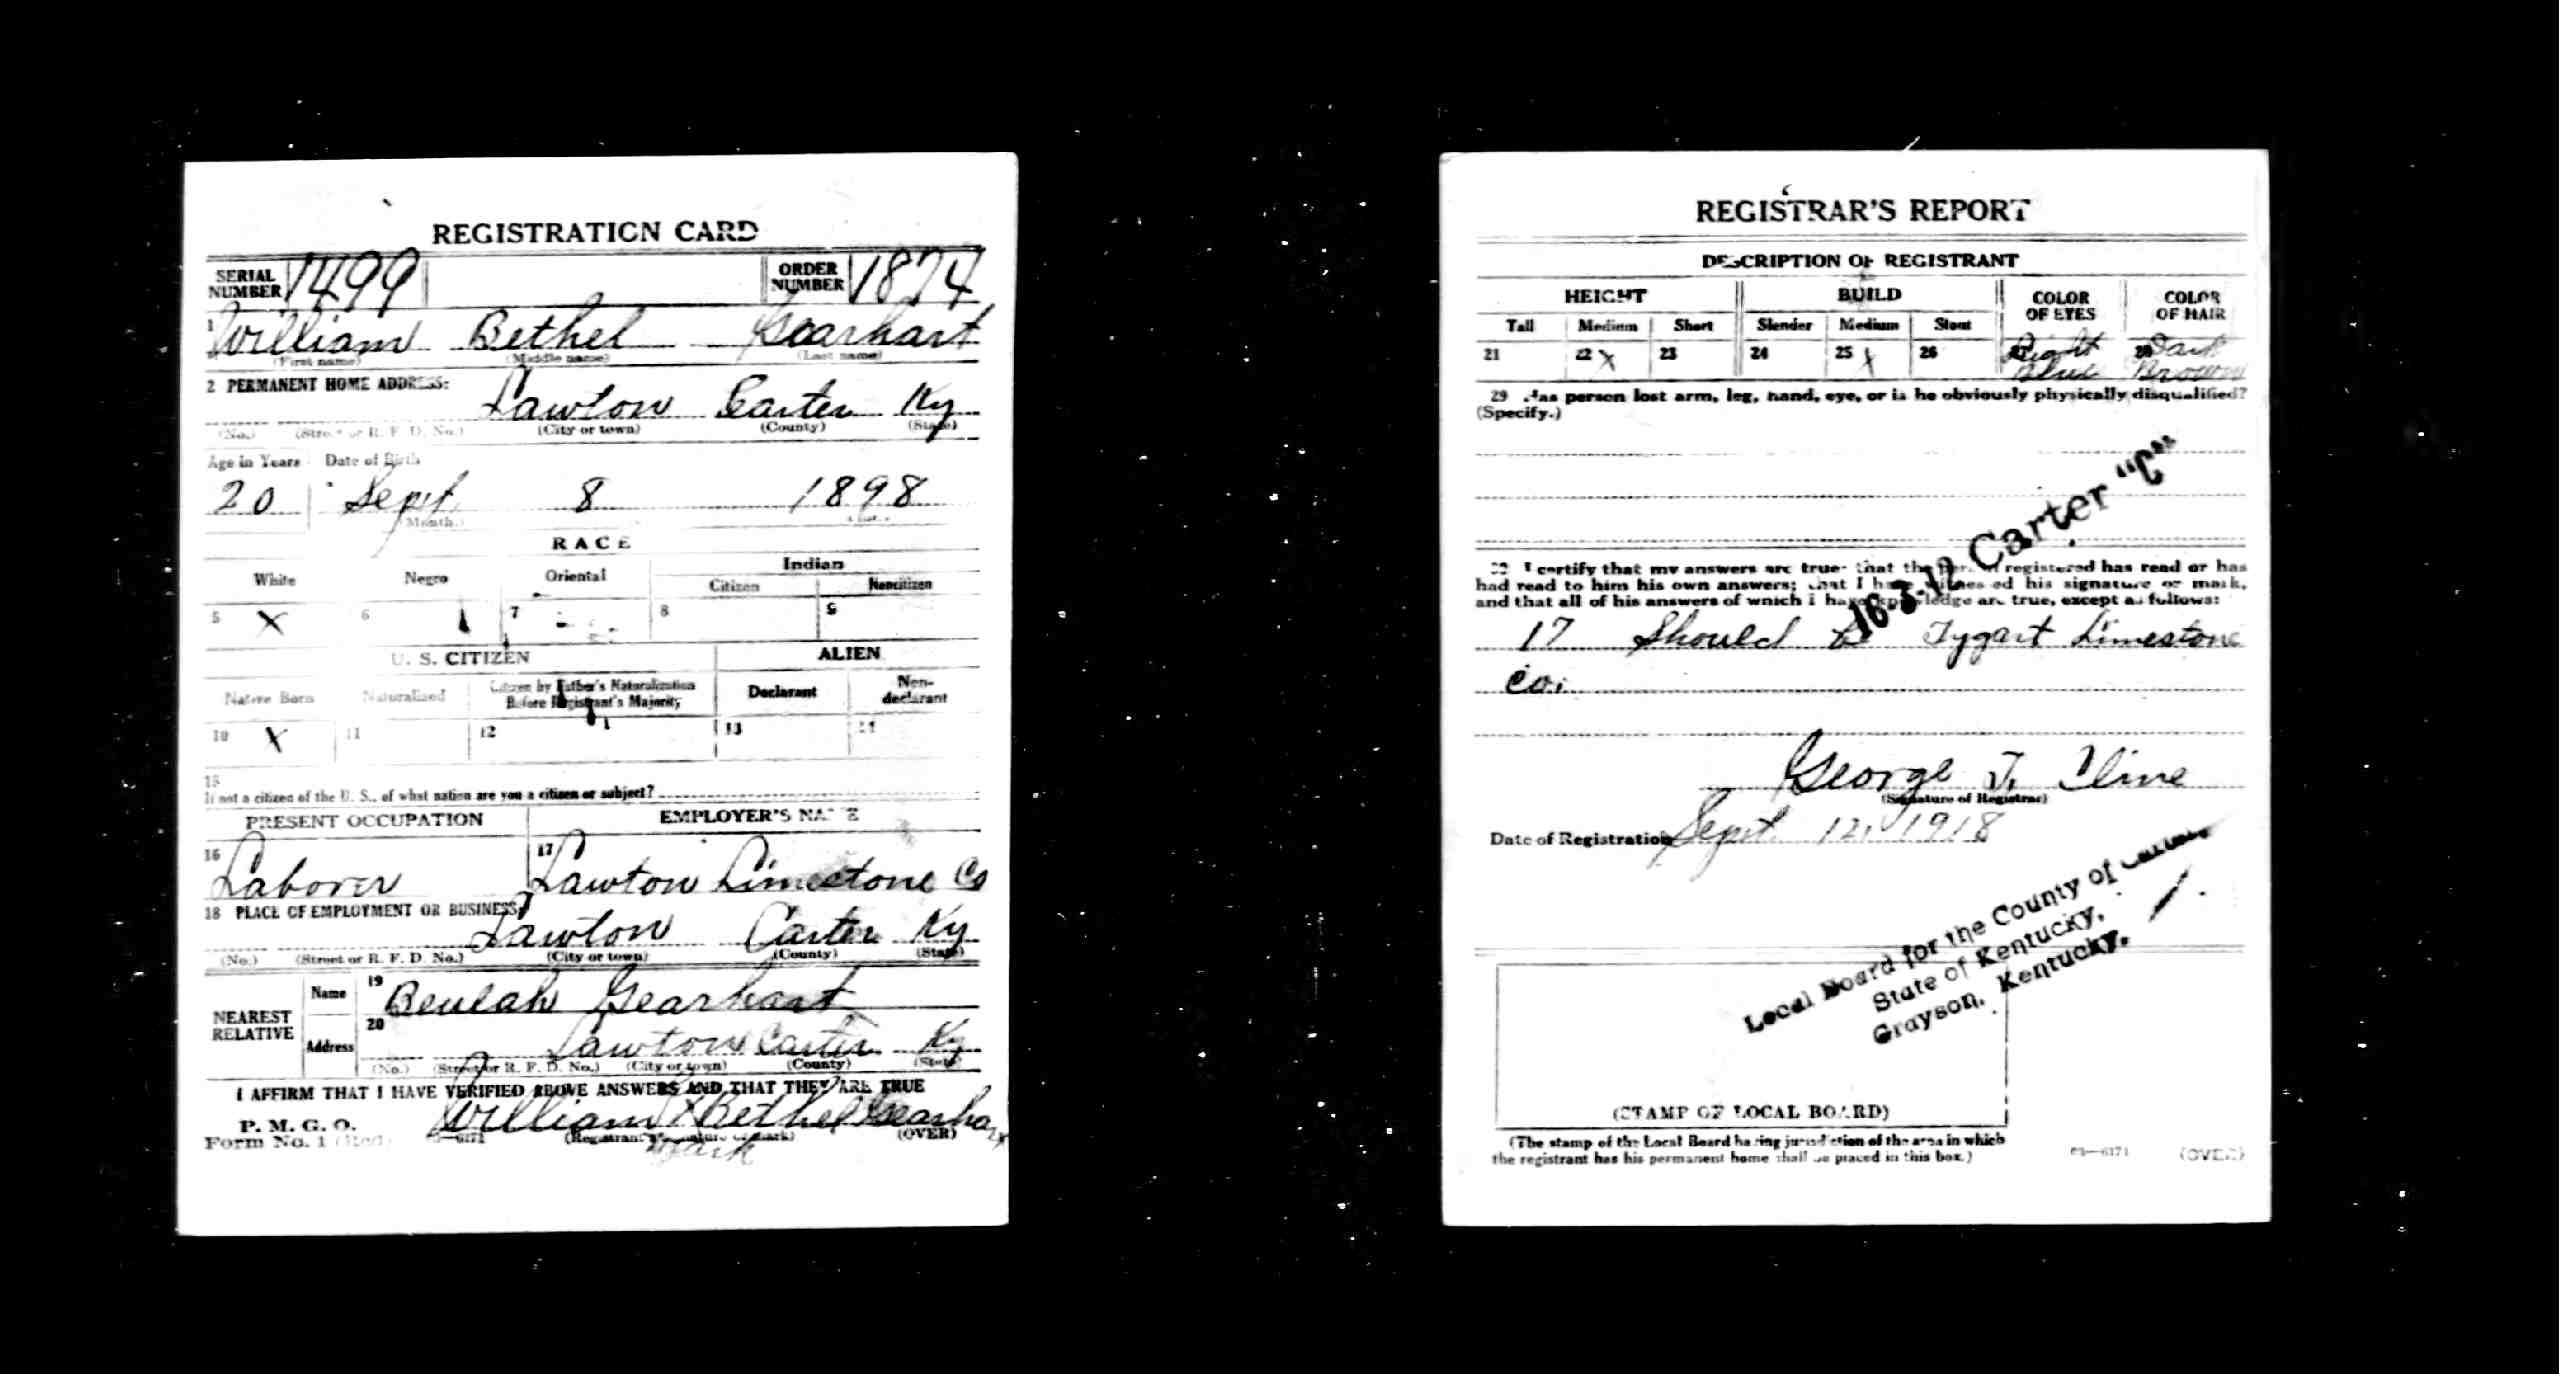 REGISTRATION CARD
SERIAL NUMBER 1499 ORDER NUMBER 1874
1 William Bethel Gearhart
(First name) (Middle name) (Last name)
2 PERMANENT HOME ADDRESS:
Lawton Carter Ky
(No.) (Street or R. F. D. No.) (City or town) (County) (State)
Age in Years Date of Birth
20 Sept. 8 1898
(Month.)
RACE
White Negro Oriental Indian
Citizen Noncitizen
5 X 6 7 8 9
U. S. CITIZEN ALIEN
Native Born Naturalized Citizen by Father's Naturalization Before Registrant's Majority Declarant Non-declarant
10 X 11 12 13 14
15
If not a citizen of the U. S., of what nation are you a citizen or subject?
PRESENT OCCUPATION EMPLOYER'S NAME
16 Laborer 17 Lawton Limestone Co
18 PLACE OF EMPLOYMENT OR BUSINESS
Lawton Carter Ky
(No.) (Street or R. F. D. No.) (City or town) (County) (State)
NEAREST RELATIVE Name 19 Beulah Gearhart
Address 20 Lawton Carter Ky
(No.) (Street or R. F. D. No.) (City or town) (County) (State)
I AFFIRM THAT I HAVE VERIFIED ABOVE ANSWERS AND THAT THEY ARE TRUE
P. M. G. O.
Form No. 1 (Red) William X Bethel Gearhart
(Registrant's signature or mark) (OVER)
Mark
REGISTRAR'S REPORT
DESCRIPTION OF REGISTRANT
HEIGHT BUILD COLOR OF EYES COLOR OF HAIR
Tall Medium Short Slender Medium Stout
21 22 X 23 24 25 X 26 Light Blue Dark Brown
29 Has person lost arm, leg, hand, eye, or is he obviously physically disqualified?
(Specify.)
16-3-12 Carter "C"
30 I certify that my answers are true; that the person registered has read or has
had read to him his own answers; that I have witnessed his signature or mark,
and that all of his answers of which I have knowledge are true, except as follows:
17 Should be Tygart Limestone
Co.
George T. Cline
(Signature of Registrar)
Date of Registration Sept. 12, 1918
Local Board for the County of Carter
State of Kentucky, 1.
Grayson, Kentucky.
(STAMP OF LOCAL BOARD)
(The stamp of the Local Board having jurisdiction of the area in which
the registrant has his permanent home shall be placed in this box.)
03—6171 (OVER)